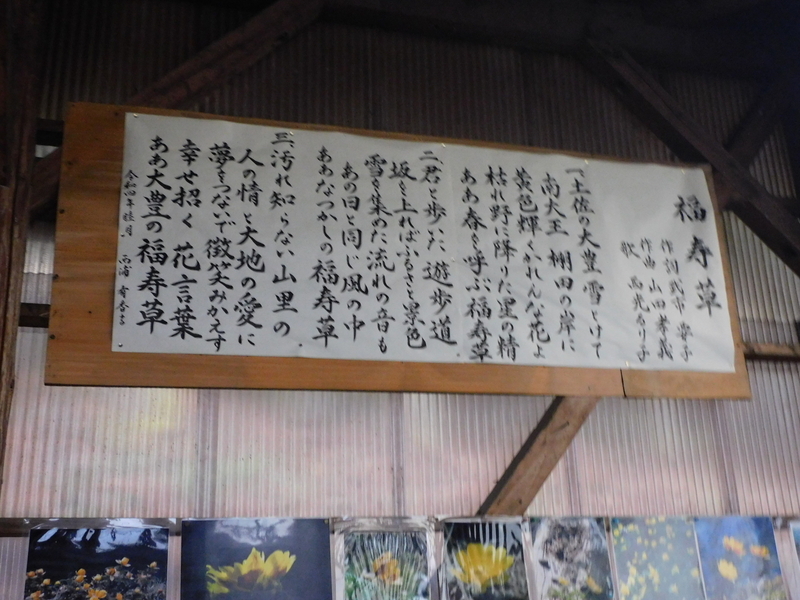 福寿草
作詞 武市 幸子
作曲 山田孝義
歌
一、土佐の大豊 雪とけて
南大王 棚田の岸に
黄色輝くかれんな花よ
枯れ野に降りた星の精
ああ春を呼ぶ福寿草
二、君と歩いた 遊歩道
坂を上ればふるさと景色
雪を集めた流れの音も
あの日と同じ風の中
ああなつかしの福寿草
三、汚れ知らない山里の
人の情と大地の愛に
夢をつないで微笑みかえす
幸せ招く 花言葉
ああ大豊の福寿草
令和四年 月